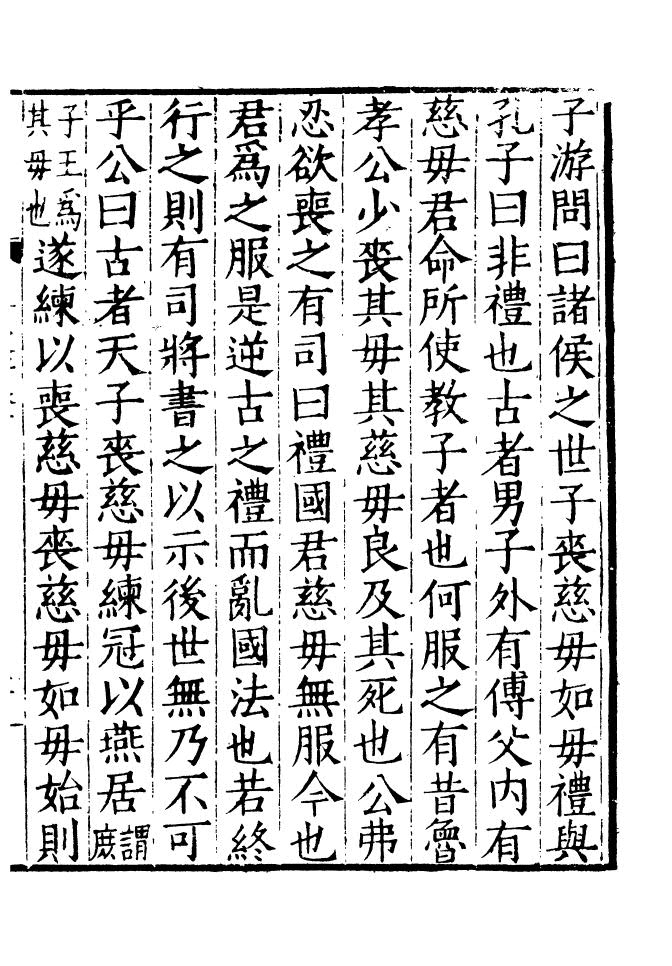 子游問曰諸侯之世子喪慈母如母禮與
孔子曰非禮也古者男子外有傅父内有
慈母君命所使教子者也何服之有昔魯
孝公少喪其母其慈母良及其死也公弗
忍欲喪之有司曰禮國君慈母無服今也
君爲之服是逆古之禮而亂國法也若終
行之則有司將書之以示後世無乃不可
乎公曰古者天子喪慈母練冠以燕居謂庶
子王爲其母也遂練以喪慈母喪慈母如母始則